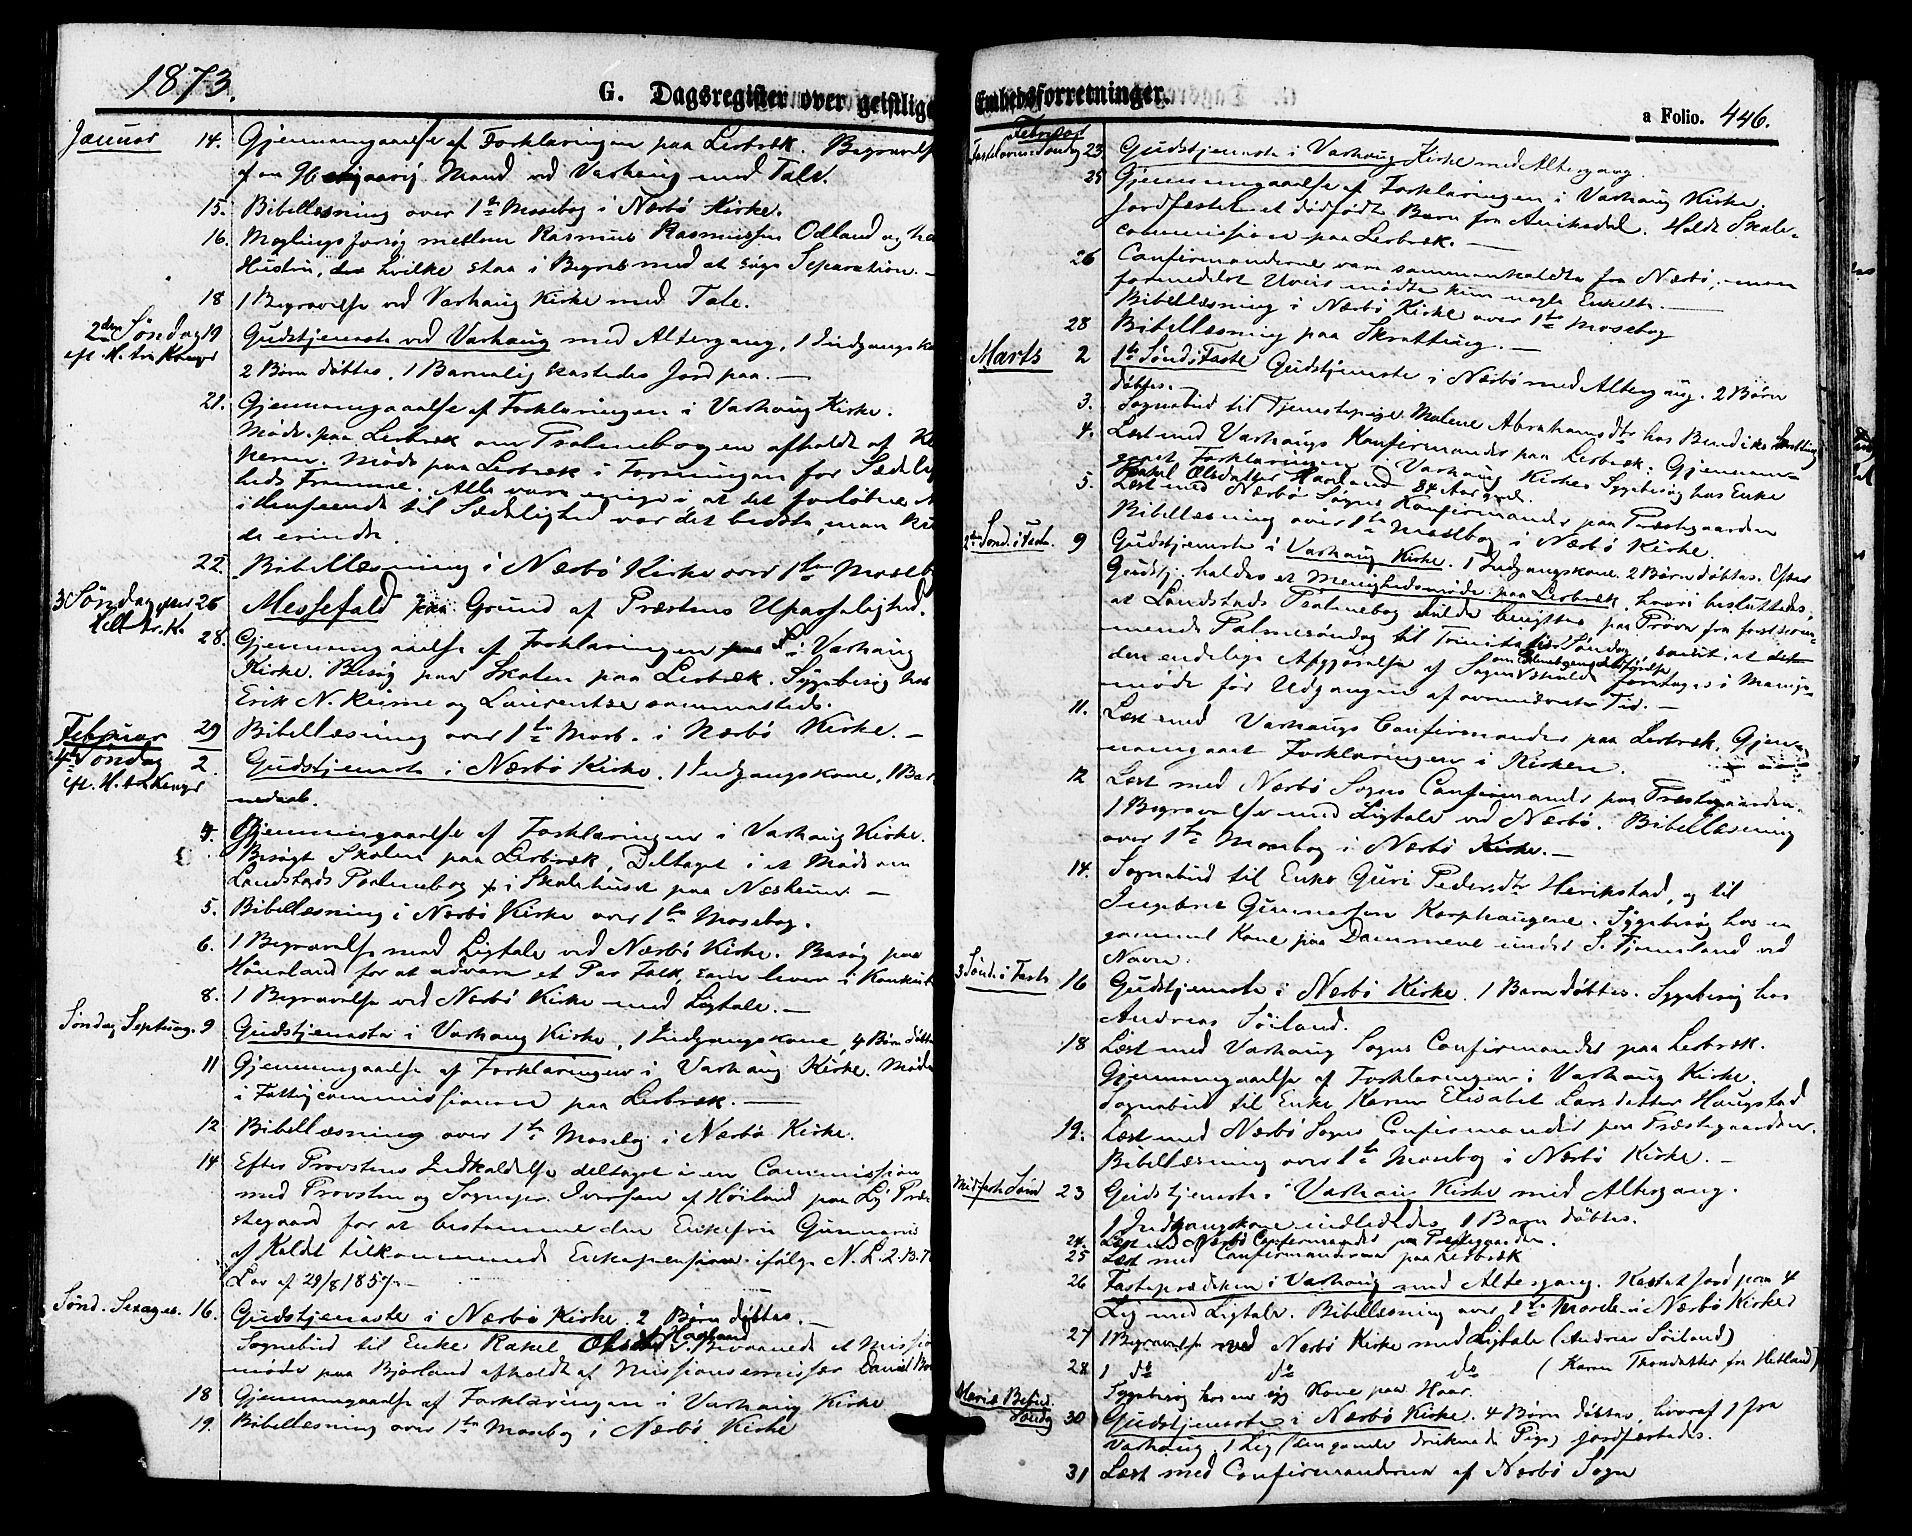 1873.
G. Dagsregister over geistlige
Januar 14. Gjennemgaaelse af Forklaringen paa Lerbræk. Begravelse
af en Mand ved Varhaug med Tale.
15. Bibellæsning over 1ste Mosebog i Nærbø Kirke.
16. Mæglingsforsøg mellem Rasmus Rasmussen Odland og
Hustru, hvilke staa i Begreb med at søge Separation. —
18 1 Begravelse ved Varhaug Kirke med Tale.
2den Søndag 19 Gudstjeneste ved Varhaug med Altergang, 1 Indgangsk
eft. H. tre Konger
2 Børn døbtes, 1 Barnelig kastedes Jord paa. —
21. Gjennemgaaelse af Forklaringen i Varhaug Kirke.
Møde paa Lerbræk om Psalmebogen afholdt af
Møde paa Lerbræk i Foreningen for Sædelig
heds Fremme. Alle vare enige i at det forløbne
i Henseende til Sædelighed var det bedste, man
de erindre.
22. Bibellæsning i Nærbø Kirke over 1ste Moseb
3 Søndag efter 26 Messefald paa Grund af Præstens Upasselighed.
Hell. tr. K.
28. Gjennemgaaelse af Forklaringen i Varhaug
Kirke. Besøg paa Skolen paa Lerbræk. Sygebesøg hos
Erik N. Reime og Laurentse sammesteds.
Februar 29 Bibellæsning over 1ste Moseb. i Nærbø Kirke. —
4de Søndag 2. Gudstjeneste i Nærbø Kirke. 1 Indgangskone, 1 Bar
eft. H. tre Konger
nedaab.
4. Gjennemgaaelse af Forklaringen i Varhaug Kirke.
Besøgt Skolen paa Lerbræk, Deltaget i et Møde om
Landstads Psalmebog i Skolehuset paa Næsheim —
5. Bibellæsning i Nærbø Kirke over 1ste Mosebog.
6. 1 Begravelse med Ligtale ved Nærbø Kirke. Besøg paa
Hønerland for at advare et Par Folk, som lever i Konkubi
8. 1 Begravelse ved Nærbø Kirke med Ligtale. —
Søndag Septuag. 9 Gudstjeneste i Varhaug Kirke, 1 Indgangskone, 4 Børn døbte
11 Gjennemgaaelse af Forklaringen i Varhaug Kirke. Møde
i Fattigcommissionen paa Lerbræk. —
12 Bibellæsning over 1ste Mosebog i Nærbø Kirke.
14 Efter Provstens Indkaldelse deltaget i en Commission
med Provsten og Sognepr. Iversen af Høiland paa Lye Præ
stegaard for at bestemme den Enkefru Gunnerus
af Høldt tilkommende Enkepension ifølge N. L. 2. B.
Lov af 29/8 1857. —
Sønd. Sexages. 16. Gudstjeneste i Nærbø Kirke. 2 Børn døbtes. —
Sognebud til Enke Rakel Haaland. Bivaanede et Missions
møde paa Bjorland afholdt af Missionsemissær Daniel
18 Gjennemgaaelse af Forklaringen i Varhaug Kirke
19. Bibellæsning over 1ste Mosebog i Nærbø Kirke
Embedsforretninger.
a Folio. 446.
Februar
Fastelavns Søndag 23. Gudstjeneste i Varhaug Kirke med Altergang.
25 Gjennemgaaelse af Forklaringen i Varhaug Kirke.
Jordfæstet et dødfødt Barn fra Anikadal. Holdt Skole-
commission paa Lerbræk. —
26 Confirmanderne vare sammenkaldte fra Nærbø, men
formedelst Uveir mødte kun nogle Enkelte. —
Bibellæsning i Nærbø Kirke over 1ste Mosebog
28 Bibellæsning paa Skratting. —
Marts 2 1ste Sønd. i Faste Gudstjeneste i Nærbø med Altergang. 2 Børn
døbtes. —
3. Sognebud til Tjenestepige Malene Abrahamsdtr hos Bendik Skratting
4. Læst med Varhaugs Konfirmander paa Lerbræk. Gjennem-
gaaet Forklaringen i Varhaug Kirke. Sygebesøg hos Enke
Rakel Olsdatter Haaland 84 Aar gml.
5. Læst med Nærbø Sogns Konfirmander paa Præstegaarden
Bibellæsning over 1ste Mosebog i Nærbø Kirke.
2den Sønd. i Faste. 9 Gudstjeneste i Varhaug Kirke. 1 Indgangskone. 2 Børn døbtes. Efter
Gudstj. holdtes et Menighedsmøde paa Lerbræk, hvori besluttedes,
at Landstads Psalmebog skulde benyttes paa Prøve fra førstkom-
mende Palmesøndag til Trinitatis Søndag, samt, at
den endelige Afgjørelse af Sagen om Psalmebogens Indførelse skulde foretages i Menig-
møde før Udgangen af ovennævnte Tid. —
11. Læst med Varhaugs Confirmander paa Lerbræk. Gjen-
nemgaaet Forklaringen i Kirken.
12 Læst med Nærbø Sogns Confirmander paa Præstegaarden.
1 Begravelse med Ligtale ved Nærbø. Bibellæsning
over 1ste Mosebog i Nærbø Kirke. —
14. Sognebud til Enke Guri Pedersdtr Herikstad, og til
Ingebret Gunnarsen Karphaugene. Sygebesøg hos en
gammel Kone paa Dammene under S. Fjemestad ved
Navn
3 Sønd. i Faste 16 Gudstjeneste i Nærbø Kirke. 1 Barn døbtes. Sygebesøg hos
Andreas Søiland.
18 Læst med Varhaug Sogns Confirmander paa Lerbræk.
Gjennemgaaelse af Forklaringen i Varhaug Kirke.
Sognebud til Enke Karen Elisabet Larsdatter Haugstad
19. Læst med Nærbø Sogns Confirmander paa Præstegaarden.
Bibellæsning over 1ste Mosebog i Nærbø Kirke. —
Midfaste Sønd 23 Gudstjeneste i Varhaug Kirke med Altergang.
1 Indgangskone indlededes, 1 Barn døbtes.
24. Læst med Nærbø Confirmander paa Præstegaarden.
25 Læst med Confirmanderne paa Lerbræk
26 Fasteprædiken i Varhaug med Altergang. Kastet Jord paa 4
Lig med Ligtale. Bibellæsning over 1ste Moseb. i Nærbø Kirke
27 1 Begravelse ved Nærbø Kirke med Ligtale (Andreas Søiland)
28 1 do do do (Karen Thorsdatter fra Hetland)
Sygebesøg hos en syg Kone paa Haar.
Mariæ Besøg. Søndag 30 Gudstjeneste i Nærbø Kirke. 4 Børn døbtes, hvoraf 1 fra
Varhaug. 1 Lig (den gamle druknede Pige) Jordfæstedes.
31 Læst med Confirmanderne af Nærbø Sogn